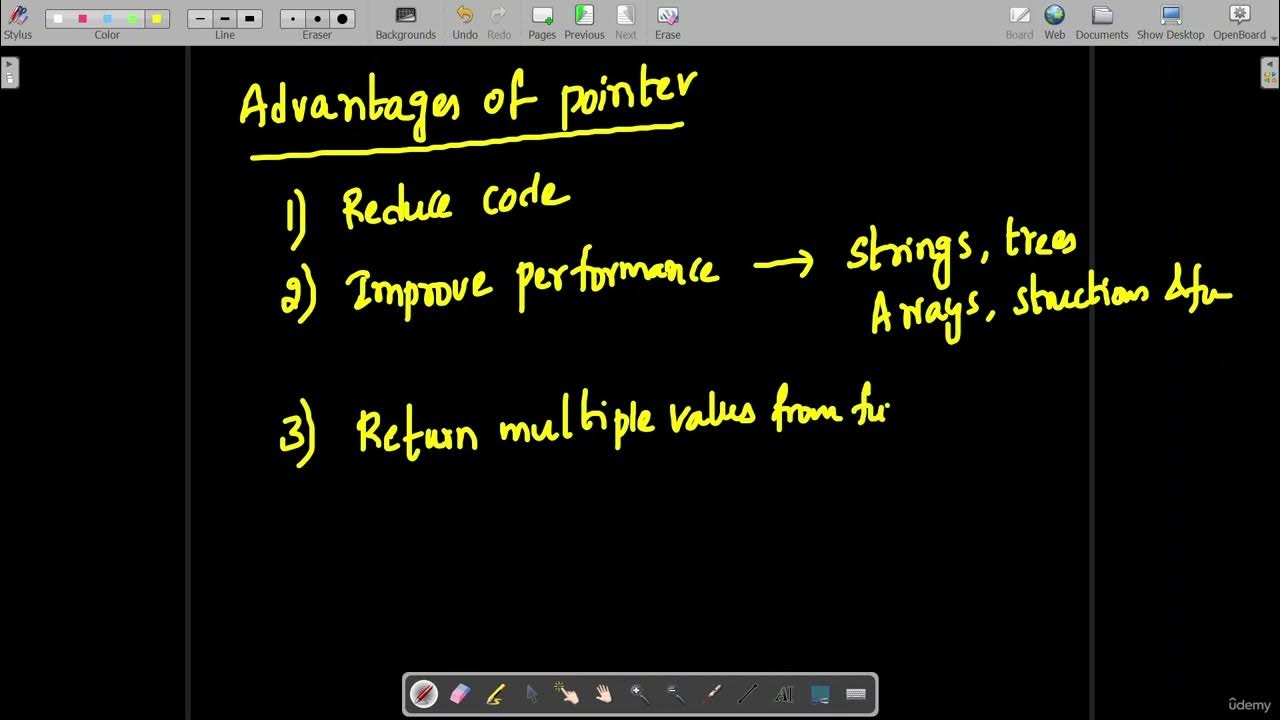 Stylus
Color
Line
Eraser
Backgrounds
Undo
Redo
Pages
Previous
Next
Erase
Board
Web
Documents
Show Desktop
OpenBoard
Advantages of pointer
1) Reduce code
2) Improve performance → Strings, trees
Arrays, structions &fu
3) Return multiple values from fu
AI
ûdemy